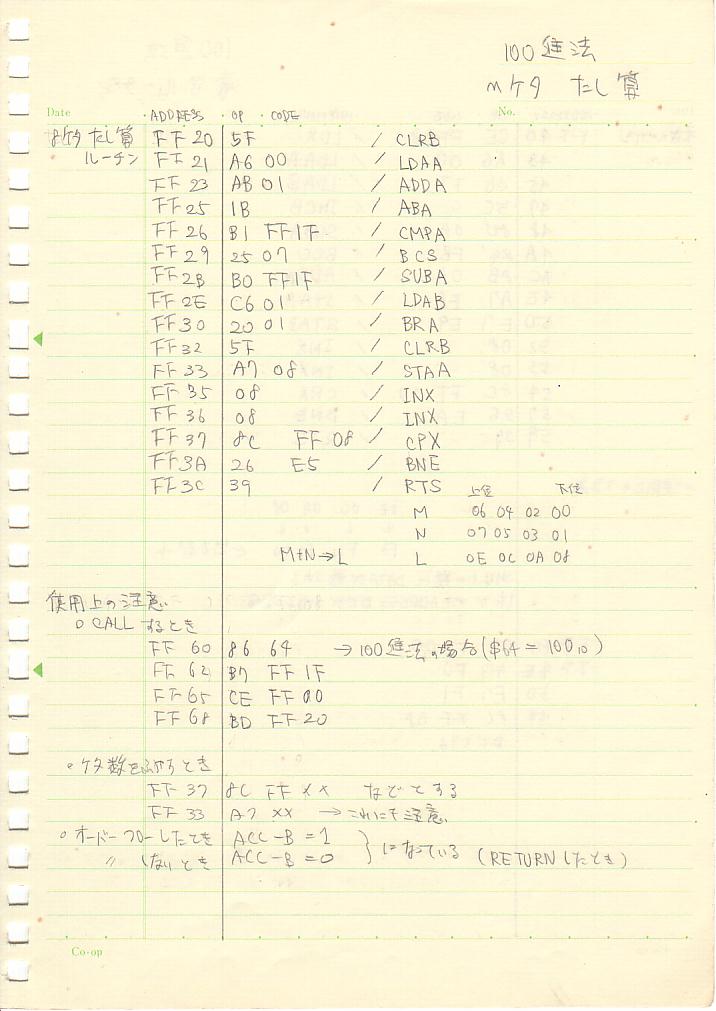 100進法
mケタ たし算
Date ・ADDRESS ・OP ・CODE No.
8ケタ たし算 FF 20 5F / CLRB
ルーチン FF 21 A6 00 / LDAA
FF 23 AB 01 / ADDA
FF 25 1B / ABA
FF 26 B1 FF1F / CMPA
FF 29 25 07 / BCS
FF 2B B0 FF1F / SUBA
FF 2E C6 01 / LDAB
FF 30 20 01 / BRA
FF 32 5F / CLRB
FF 33 A7 08 / STAA
FF 35 08 / INX
FF 36 08 / INX
FF 37 8C FF 08 / CPX
FF 3A 26 E5 / BNE
FF 3C 39 / RTS 上位 下位
M 06 04 02 00
N 07 05 03 01
M+N→L L 0E 0C 0A 08
使用上の注意
○ CALL するとき
FF 60 86 64 → 100進法の場合 ($64 = 100₁₀)
FF 62 B7 FF 1F
FF 65 CE FF 00
FF 68 BD FF 20
○ ケタ数をふやすとき
FF 37 8C FF ×× などとする
FF 33 A7 ×× → これにも注意
○ オーバーフローしたとき ACC-B = 1
〃 しないとき ACC-B = 0 } になっている (RETURNしたとき)
Co-op